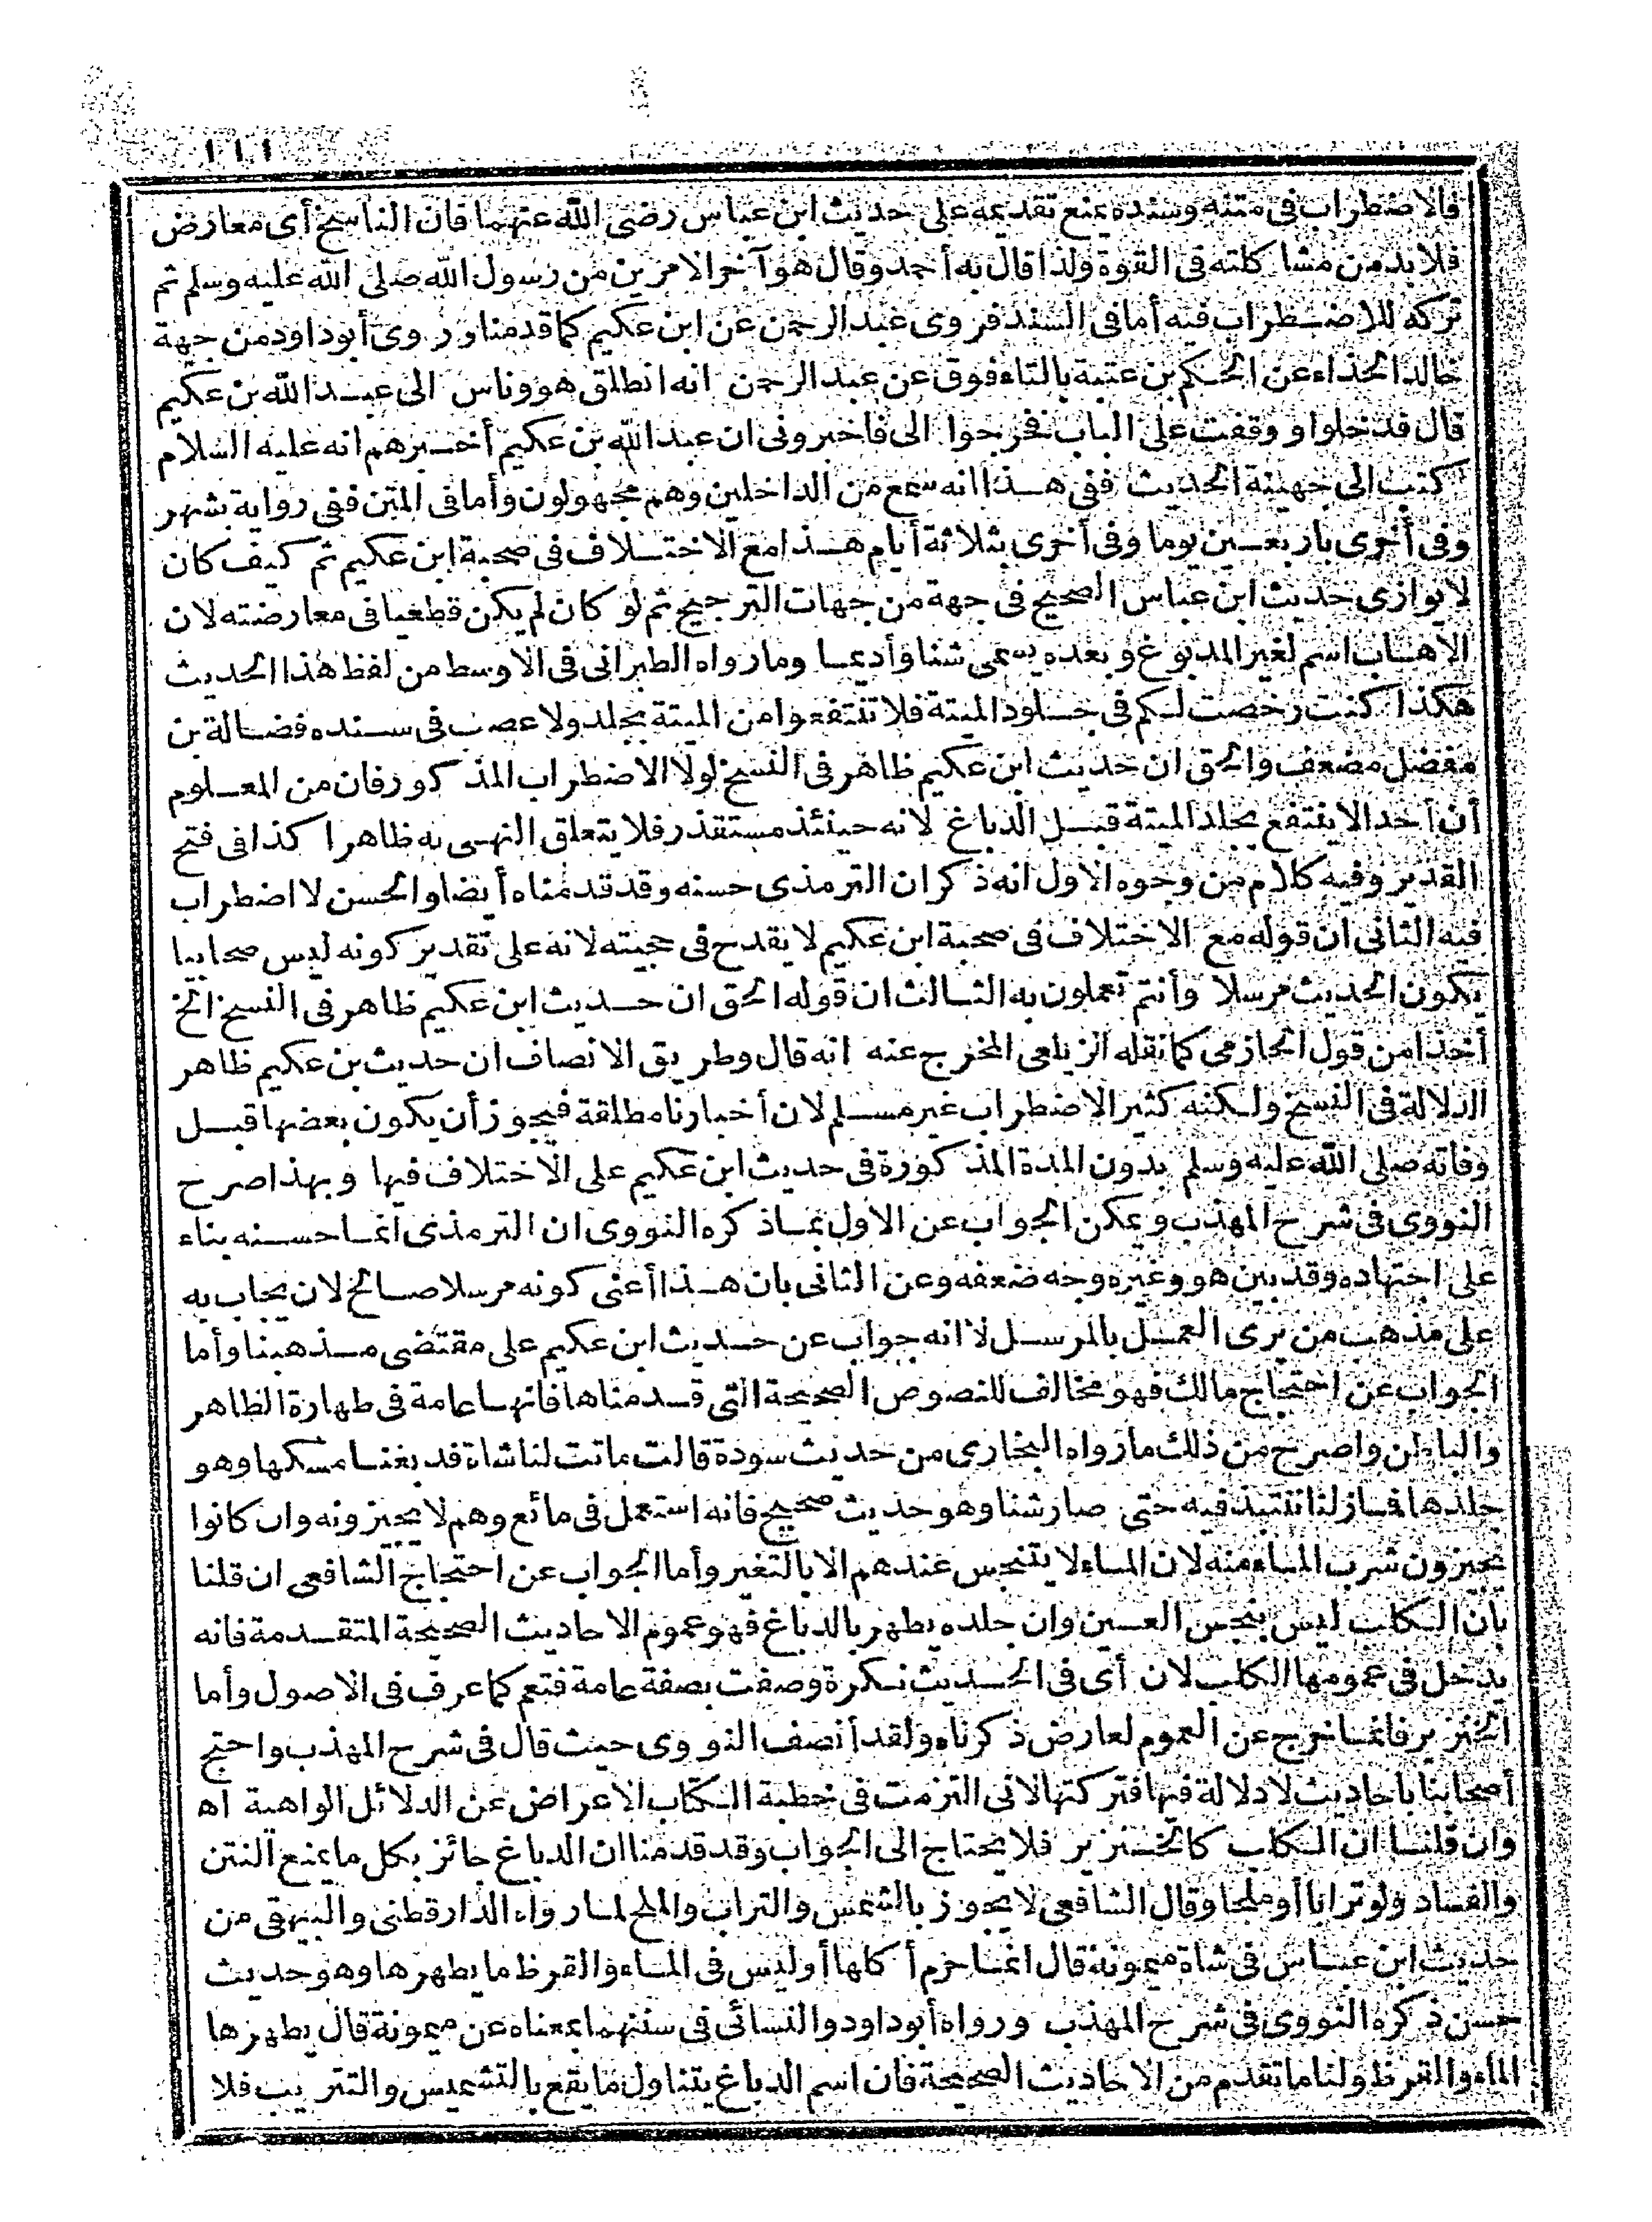 ١١١
فالاضطراب فى متنه وسنده يمنع تقديمه على حديث ابن عباس رضى الله عنهما فان الناسخ أى معارض
فلا بد من مشاكلته فى القوة ولذا قال به أحمد وقال هو آخر الامرين من رسول الله صلى الله عليه وسلم ثم
تركه للاضطراب فيه أما فى السند فروى عبد الرحمن عن ابن عكيم كما قدمنا وروى أبو داود من جهة
خالد الحذاء عن الحكم بن عتبة بالتاء فوق عن عبد الرحمن انه انطلق هو وناس الى عبد الله بن عكيم
قال فدخلوا ووقفت على الباب فخرجوا الى فاخبرونى ان عبد الله بن عكيم أخبرهم انه عليه السلام
كتب الى جهينة الحديث ففى هذا انه سمع من الداخلين وهم مجهولون وأما فى المتن ففى رواية بشهر
وفى أخرى باربعين يوما وفى أخرى بثلاثة أيام هذا مع الاختلاف فى صحبة ابن عكيم ثم كيف كان
لا يوازى حديث ابن عباس الصحيح فى جهة من جهات الترجيح ثم لو كان لم يكن قطعيا فى معارضته لان
الاهاب اسم لغير المدبوغ وبعده يسمى شنا وأديما وما رواه الطبرانى فى الاوسط من لفظ هذا الحديث
هكذا كنت رخصت لكم فى جلود الميتة فلا تنتفعوا من الميتة بجلد ولا عصب فى سنده فضالة بن
مفضل مضعف والحق ان حديث ابن عكيم ظاهر فى النسخ لولا الاضطراب المذكور فان من المعلوم
أن أحدا لا ينتفع بجلد الميتة قبل الدباغ لانه حينئذ مستقذر فلا يتعلق النهى به ظاهرا كذا فى فتح
القدير وفيه كلام من وجوه الاول انه ذكر ان الترمذى حسنه وقد قدمناه أيضا والحسن لا اضطراب
فيه الثانى ان قوله مع الاختلاف فى صحبة ابن عكيم لا يقدح فى حجيته لانه على تقدير كونه ليس صحابيا
يكون الحديث مرسلا وأنتم تعملون به الثالث ان قوله الحق ان حديث ابن عكيم ظاهر فى النسخ الخ
أخذا من قول الحازمى كما نقله الزيلعى المخرج عنه انه قال وطريق الانصاف ان حديث بن عكيم ظاهر
الدلالة فى النسخ ولكنه كثير الاضطراب غير مسلم لان أخبارنا مطلقة فيجوز أن يكون بعضها قبل
وفاته صلى الله عليه وسلم بدون المدة المذكورة فى حديث ابن عكيم على الاختلاف فيها وبهذا صرح
النووى فى شرح المهذب ويمكن الجواب عن الاول بما ذكره النووى ان الترمذى انما حسنه بناء
على اجتهاده وقد بين هو وغيره وجه ضعفه وعن الثانى بان هذا أعنى كونه مرسلا صالح لان يجاب به
على مذهب من يرى العمل بالمرسل لا انه جواب عن حديث ابن عكيم على مقتضى مذهبنا وأما
الجواب عن احتجاج مالك فهو مخالف للنصوص الصحيحة التى قدمناها فانها عامة فى طهارة الظاهر
والباطن واصرح من ذلك ما رواه البخارى من حديث سودة قالت ماتت لنا شاة فدبغنا مسكها وهو
جلدها فما زلنا ننتبذ فيه حتى صار شنا وهو حديث صحيح فانه استعمل فى مائع وهم لا يجيزونه وان كانوا
يجيزون شرب الماء منه لان الماء لا يتنجس عندهم الا بالتغير وأما الجواب عن احتجاج الشافعى ان قلنا
بان الكلب ليس بنجس العين وان جلده يطهر بالدباغ فهو عموم الاحاديث الصحيحة المتقدمة فانه
يدخل فى عمومها الكلب لان أى فى الحديث نكرة وصفت بصفة عامة فتعم كما عرف فى الاصول وأما
الخنزير فانما خرج عن العموم لعارض ذكرناه ولقد أنصف النووى حيث قال فى شرح المهذب واحتج
أصحابنا باحاديث لا دلالة فيها فتركتها لانى التزمت فى خطبة الكتاب الاعراض عن الدلائل الواهية اه
وان قلنا ان الكلب كالخنزير فلا يحتاج الى الجواب وقد قدمنا ان الدباغ جائز بكل ما يمنع النتن
والفساد ولو ترابا أو ملحا وقال الشافعى لا يجوز بالشمس والتراب والملح لما رواه الدارقطنى والبيهقى من
حديث ابن عباس فى شاة ميمونة قال انما حرم أكلها أوليس فى الماء والقرظ ما يطهرها وهو حديث
حسن ذكره النووى فى شرح المهذب ورواه أبو داود والنسائى فى سننهما بمعناه عن ميمونة قال يطهرها
الماء والقرظ ولنا ما تقدم من الاحاديث الصحيحة فان اسم الدباغ يتناول ما يقع بالتشميس والتتريب فلا